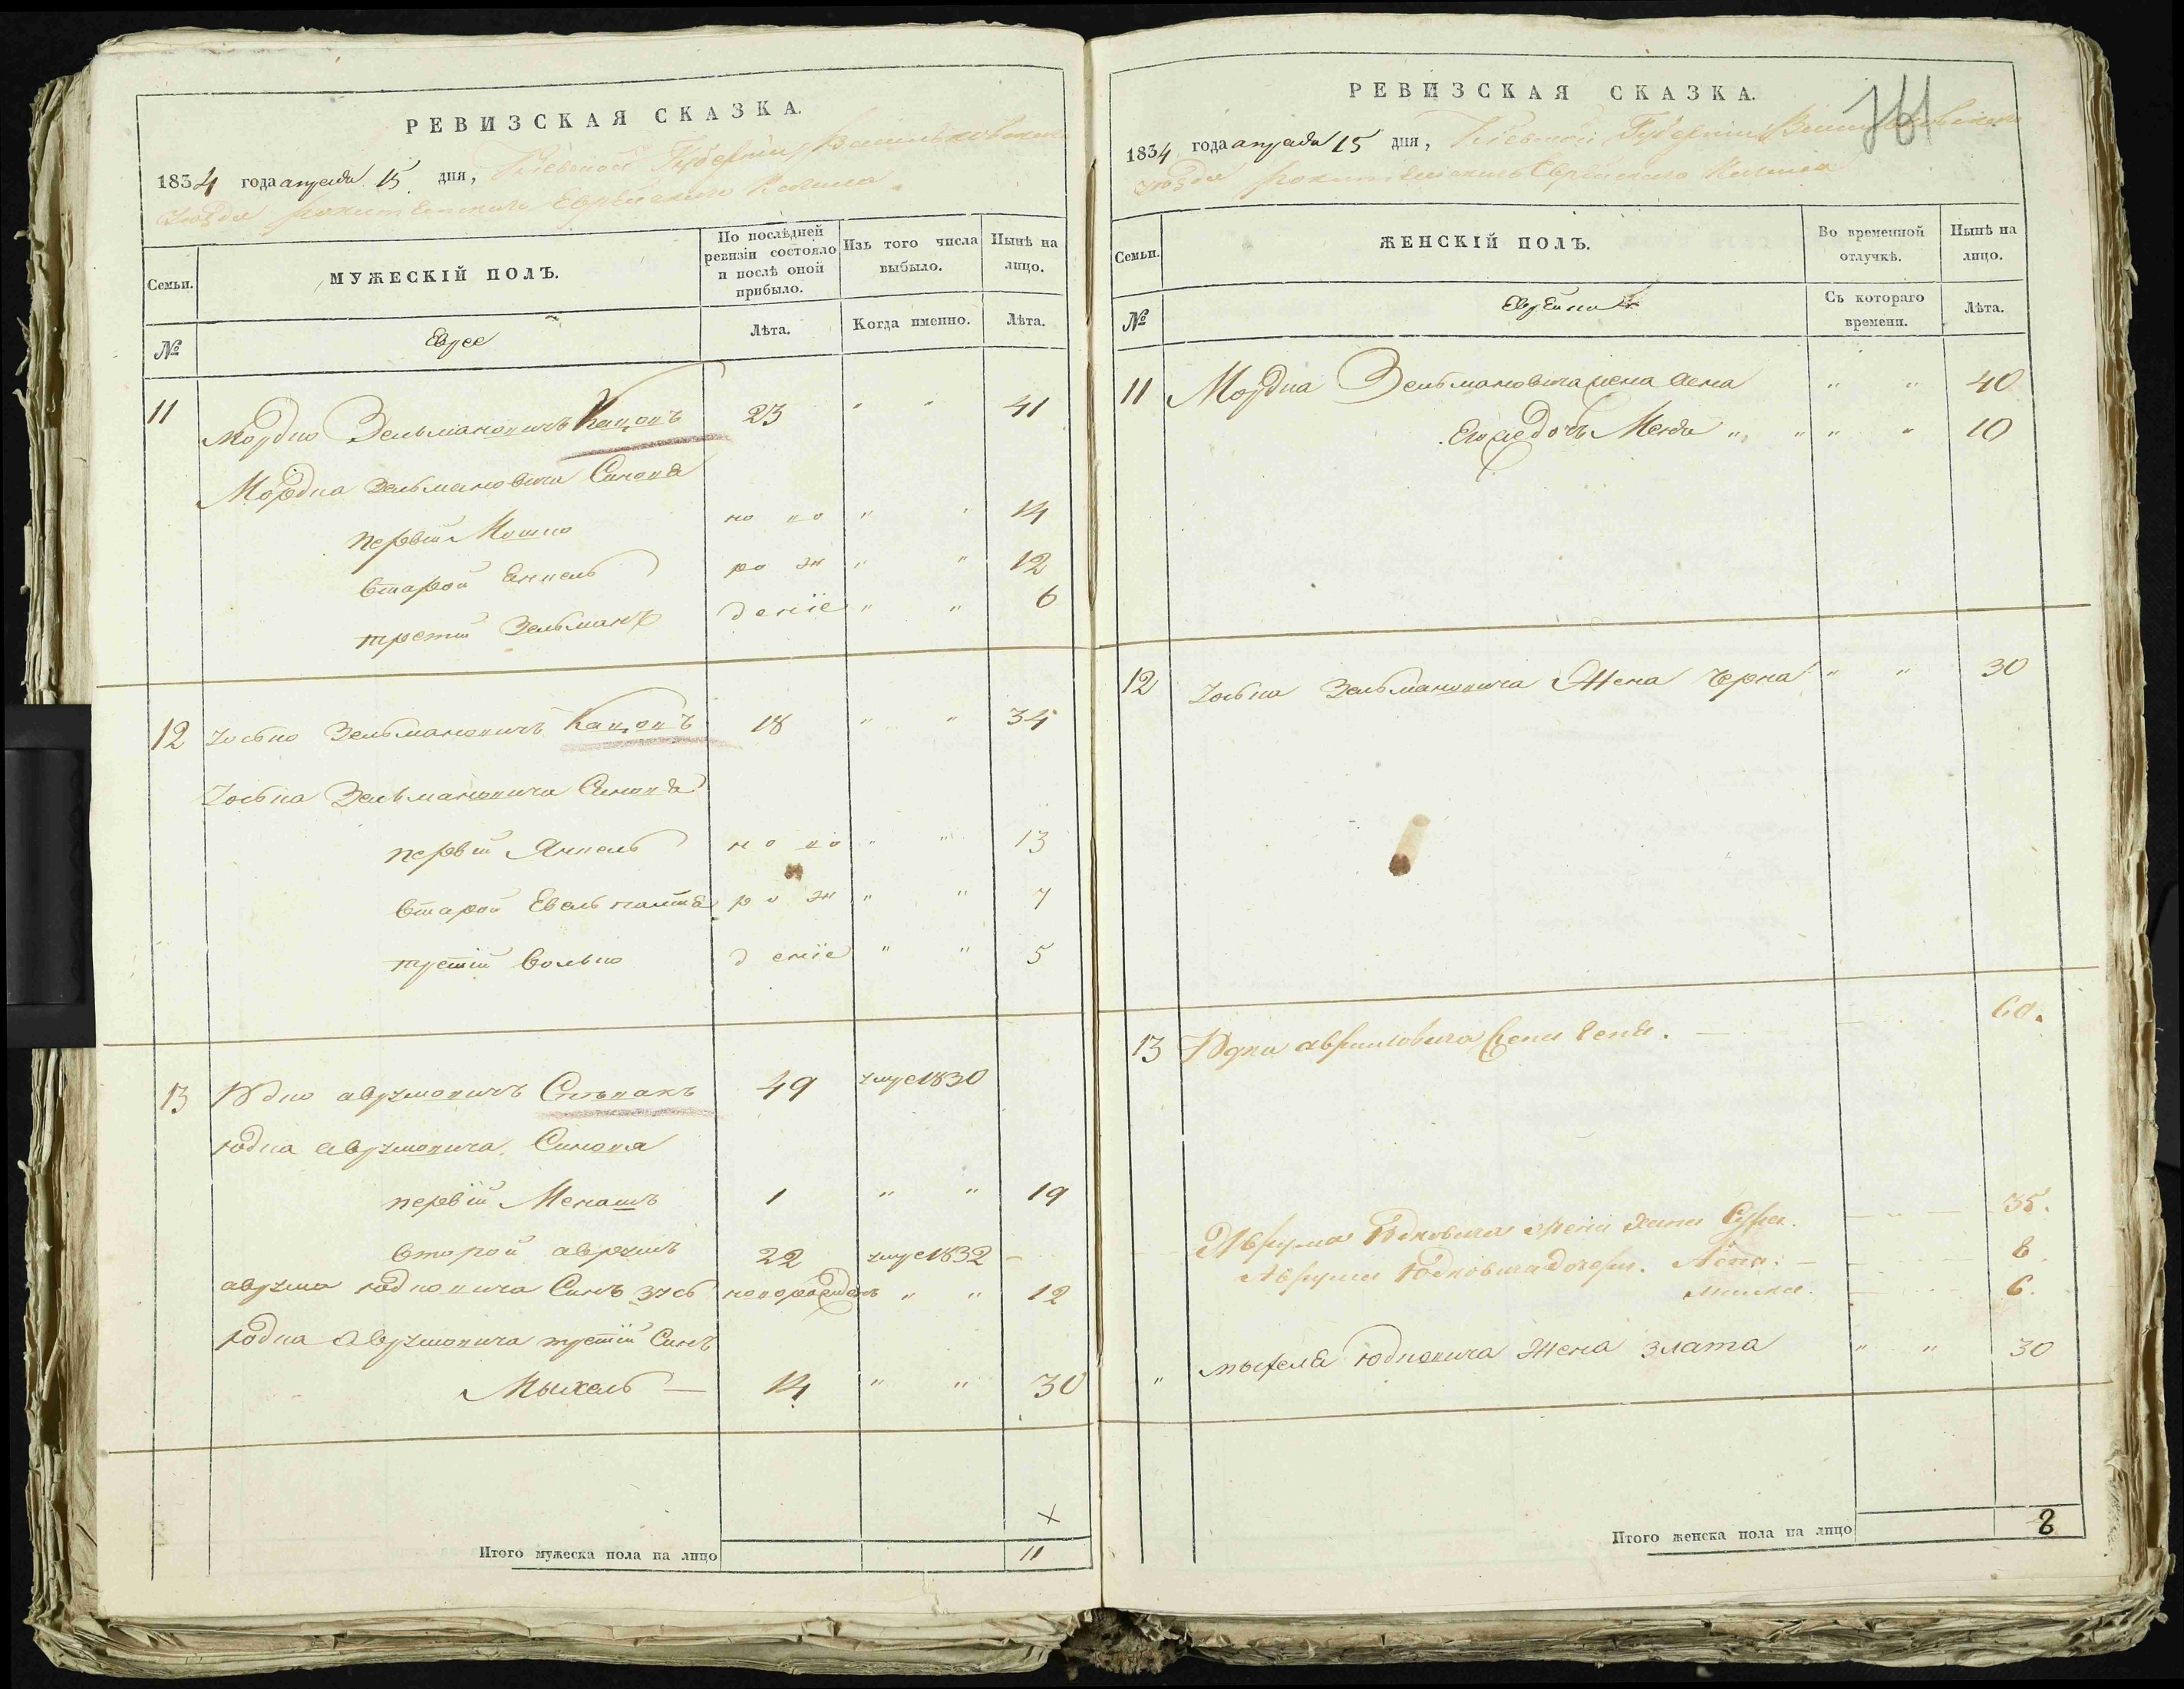 РЕВИЗСКАЯ СКАЗКА.
1834 года апреля 15 дня, Киевской Губернии Васильковского
уезда Рокитянского Еврейского Кагала.
Семьи.
МУЖЕСКІЙ ПОЛЪ.
По послѣдней ревизіи состояло и послѣ оной прибыло.
Изъ того числа выбыло.
Нынѣ на лицо.
№
Евреи
Лѣта.
Когда именно.
Лѣта.
11 Мордко Зельмановичъ Кацовъ 23 " " 41
Мордка Зельмановича Синовя
первій Мошко но во " " 14
второй Янкель ро ж " " 12
третій Зельманъ деніе " " 6
12 Iосько Зельмановичъ Кацовъ 18 " " 34
Iоська Зельмановича Синовя
первій Янкель но во " " 13
вторий ро ж " " 7
третій Волько деніе " " 5
13 Юдко аврумовичъ Спѣвакъ 49 умре 1830
юдка аврумовича Синовя
первій Менашъ 1 " " 19
второй аврумъ 22 умре 1832 -
аврума юдковича Синъ новорожденъ " " 12
Юдка Аврумовича третій Синъ
Мыхель — 14 " " 30
х
Итого мужеска пола на лицо 11
РЕВИЗСКАЯ СКАЗКА.
1834 года апреля 15 дня, Киевской Губернии Васильковского
уезда Рокитянского Еврейского Кагала
Семьи.
ЖЕНСКІЙ ПОЛЪ.
Во временной отлучкѣ.
Нынѣ на лицо.
№
Еврейки
Съ котораго времени.
Лѣта.
11 Мордка Зельмановича жена " " 40
Его же дочъ " " " " 10
12 Iоська Зельмановича Жена Черна " " 30
13 Юдка аврумовича жена . — 60.
Аврума Юдковича жена Хана Сура. — " — 35.
Аврума Юдковича дочери. — 8.
Малка. 6.
" мыхеля юдковича Жена злата " " 30
Итого женска пола на лицо 8